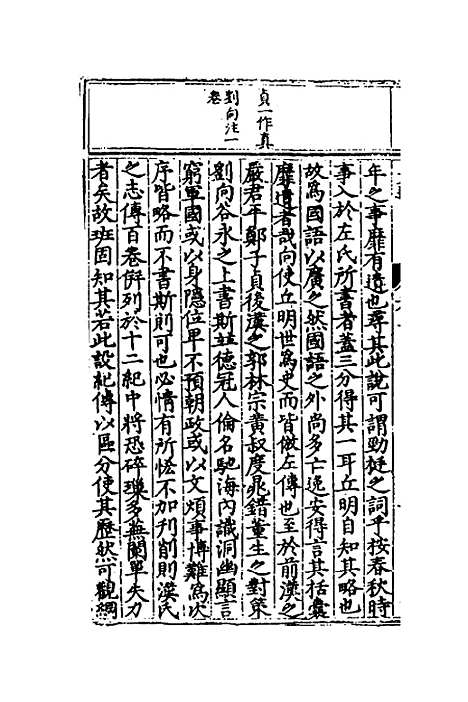 貞一作真
劉向注一
卷
年之事靡有遺也尋其此說可謂勁挺之詞乎按春秋時
事入於左氏所書者蓋三分得其一耳丘明自知其略也
故爲國語以廣之然國語之外尚多亡逸安得言其括囊
靡遺者哉向使丘明世爲史而皆倣左傳也至於前漢之
嚴君平鄭子貞後漢之郭林宗黃叔度晁錯董生之對策
劉向谷永之上書斯並德冠人倫名馳海內識洞幽顯言
窮軍國或以身隱位卑不預朝政或以文煩事博難爲次
序皆略而不書斯則可也必情有所恡不加刊削則漢氏
之志傳百卷倂列於十二紀中將恐碎瓅多蕪闌單失力
者矣故班固知其若此設紀傳以區分使其歷然可觀綱